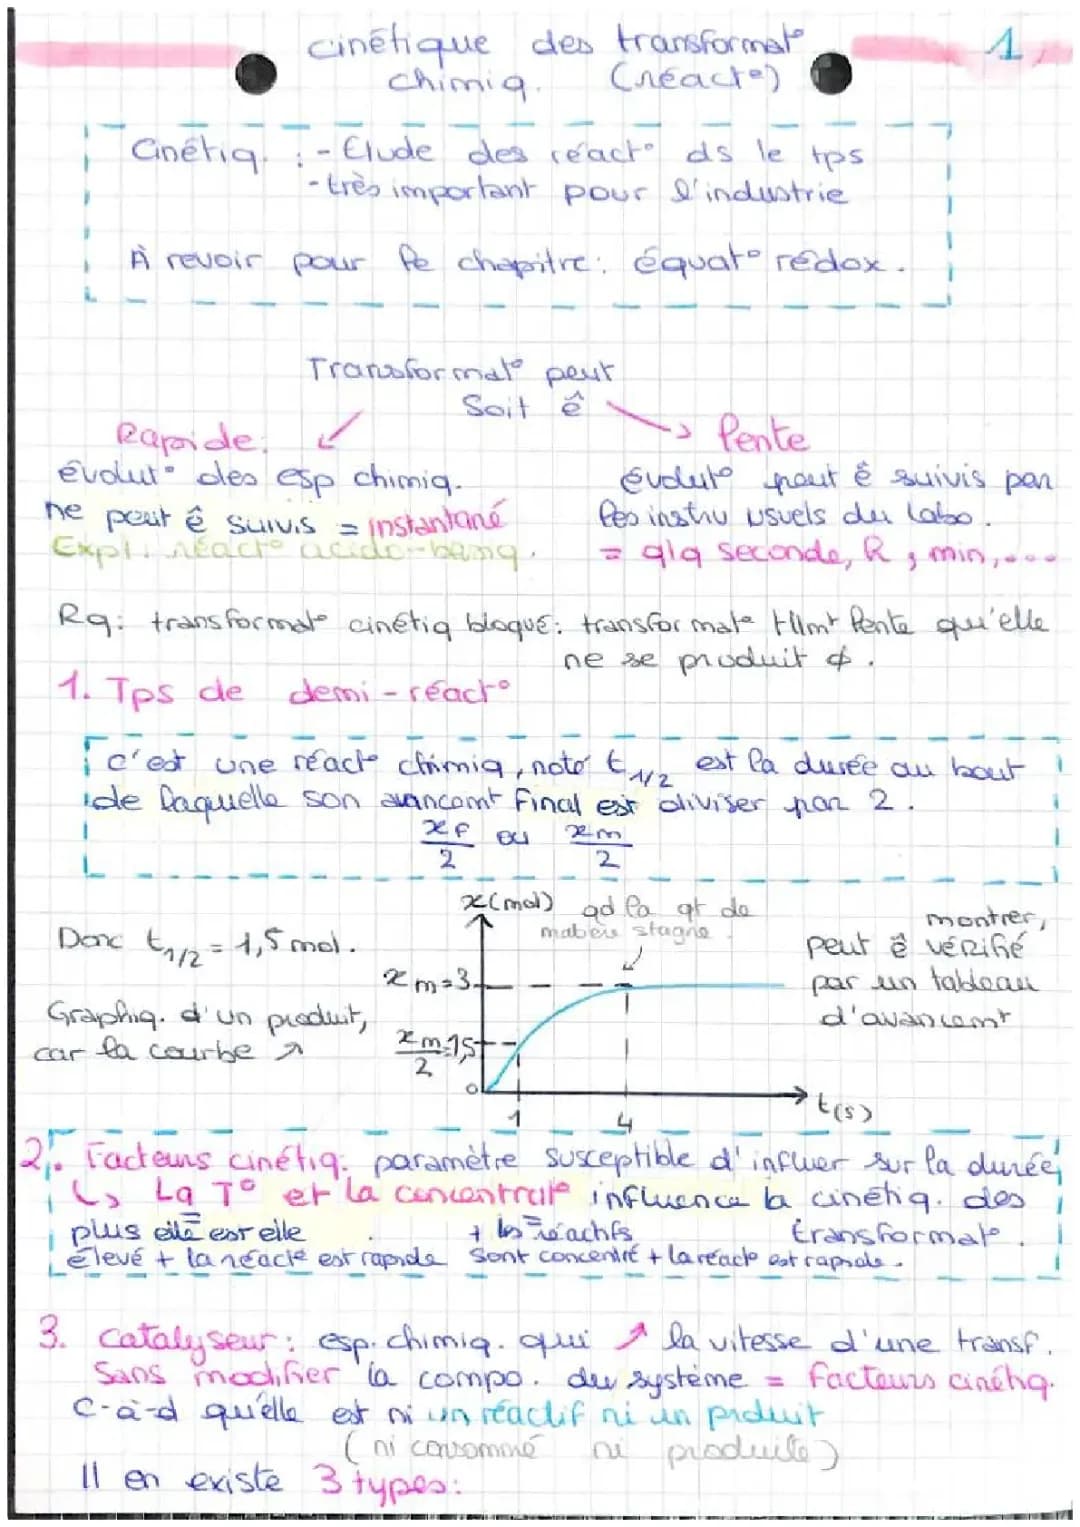 cinétique des transformat°
1
chimiq. (réact°)
Cinétiq. : - Etude des réact° ds le tps
- très important pour l'industrie
À revoir pour le chapitre: équat° rédox.
Transformat° peut
Soit ê
Rapide:
évolut° des esp chimiq.
ne peut ê suivis = instantané
Expl: réact° acido-basiq.
Lente
évolut° peut ê suivis par
les instru usuels du labo.
= qlq seconde, h, min,...
Rq: transformat° cinétiq bloqué: transformat° tllmt lente qu'elle
ne se produit ϕ.
1. Tps de demi-réact°
c'est une réact° chimiq, noté t1/2 est la durée au bout
de laquelle son avancemt final est diviser par 2.
xf/2 ou xm/2
Donc t1/2 = 1,5 mol.
Graphiq. d'un produit,
car la courbe ↗
x(mol)
qd la qt de
matière stagne
xm=3
xm/2=1,5
0
1
4
t(s)
montrer,
peut ê vérifié
par un tableau
d'avancemt
2. Facteurs cinétiq: paramètre susceptible d'influer sur la durée,
↳ La T° et la concentrat° influence la cinétiq. des
transformat°.
plus elle est elle
élevé + la réact° est rapide
+ les réactifs
sont concentré + la réact° est rapide.
3. Catalyseur: esp. chimiq. qui ↗ la vitesse d'une transf.
Sans modifier la compo. du système = facteurs cinétiq.
C-à-d qu'elle est ni un réactif ni un produit
(ni consommé ni produite)
Il en existe 3 types: